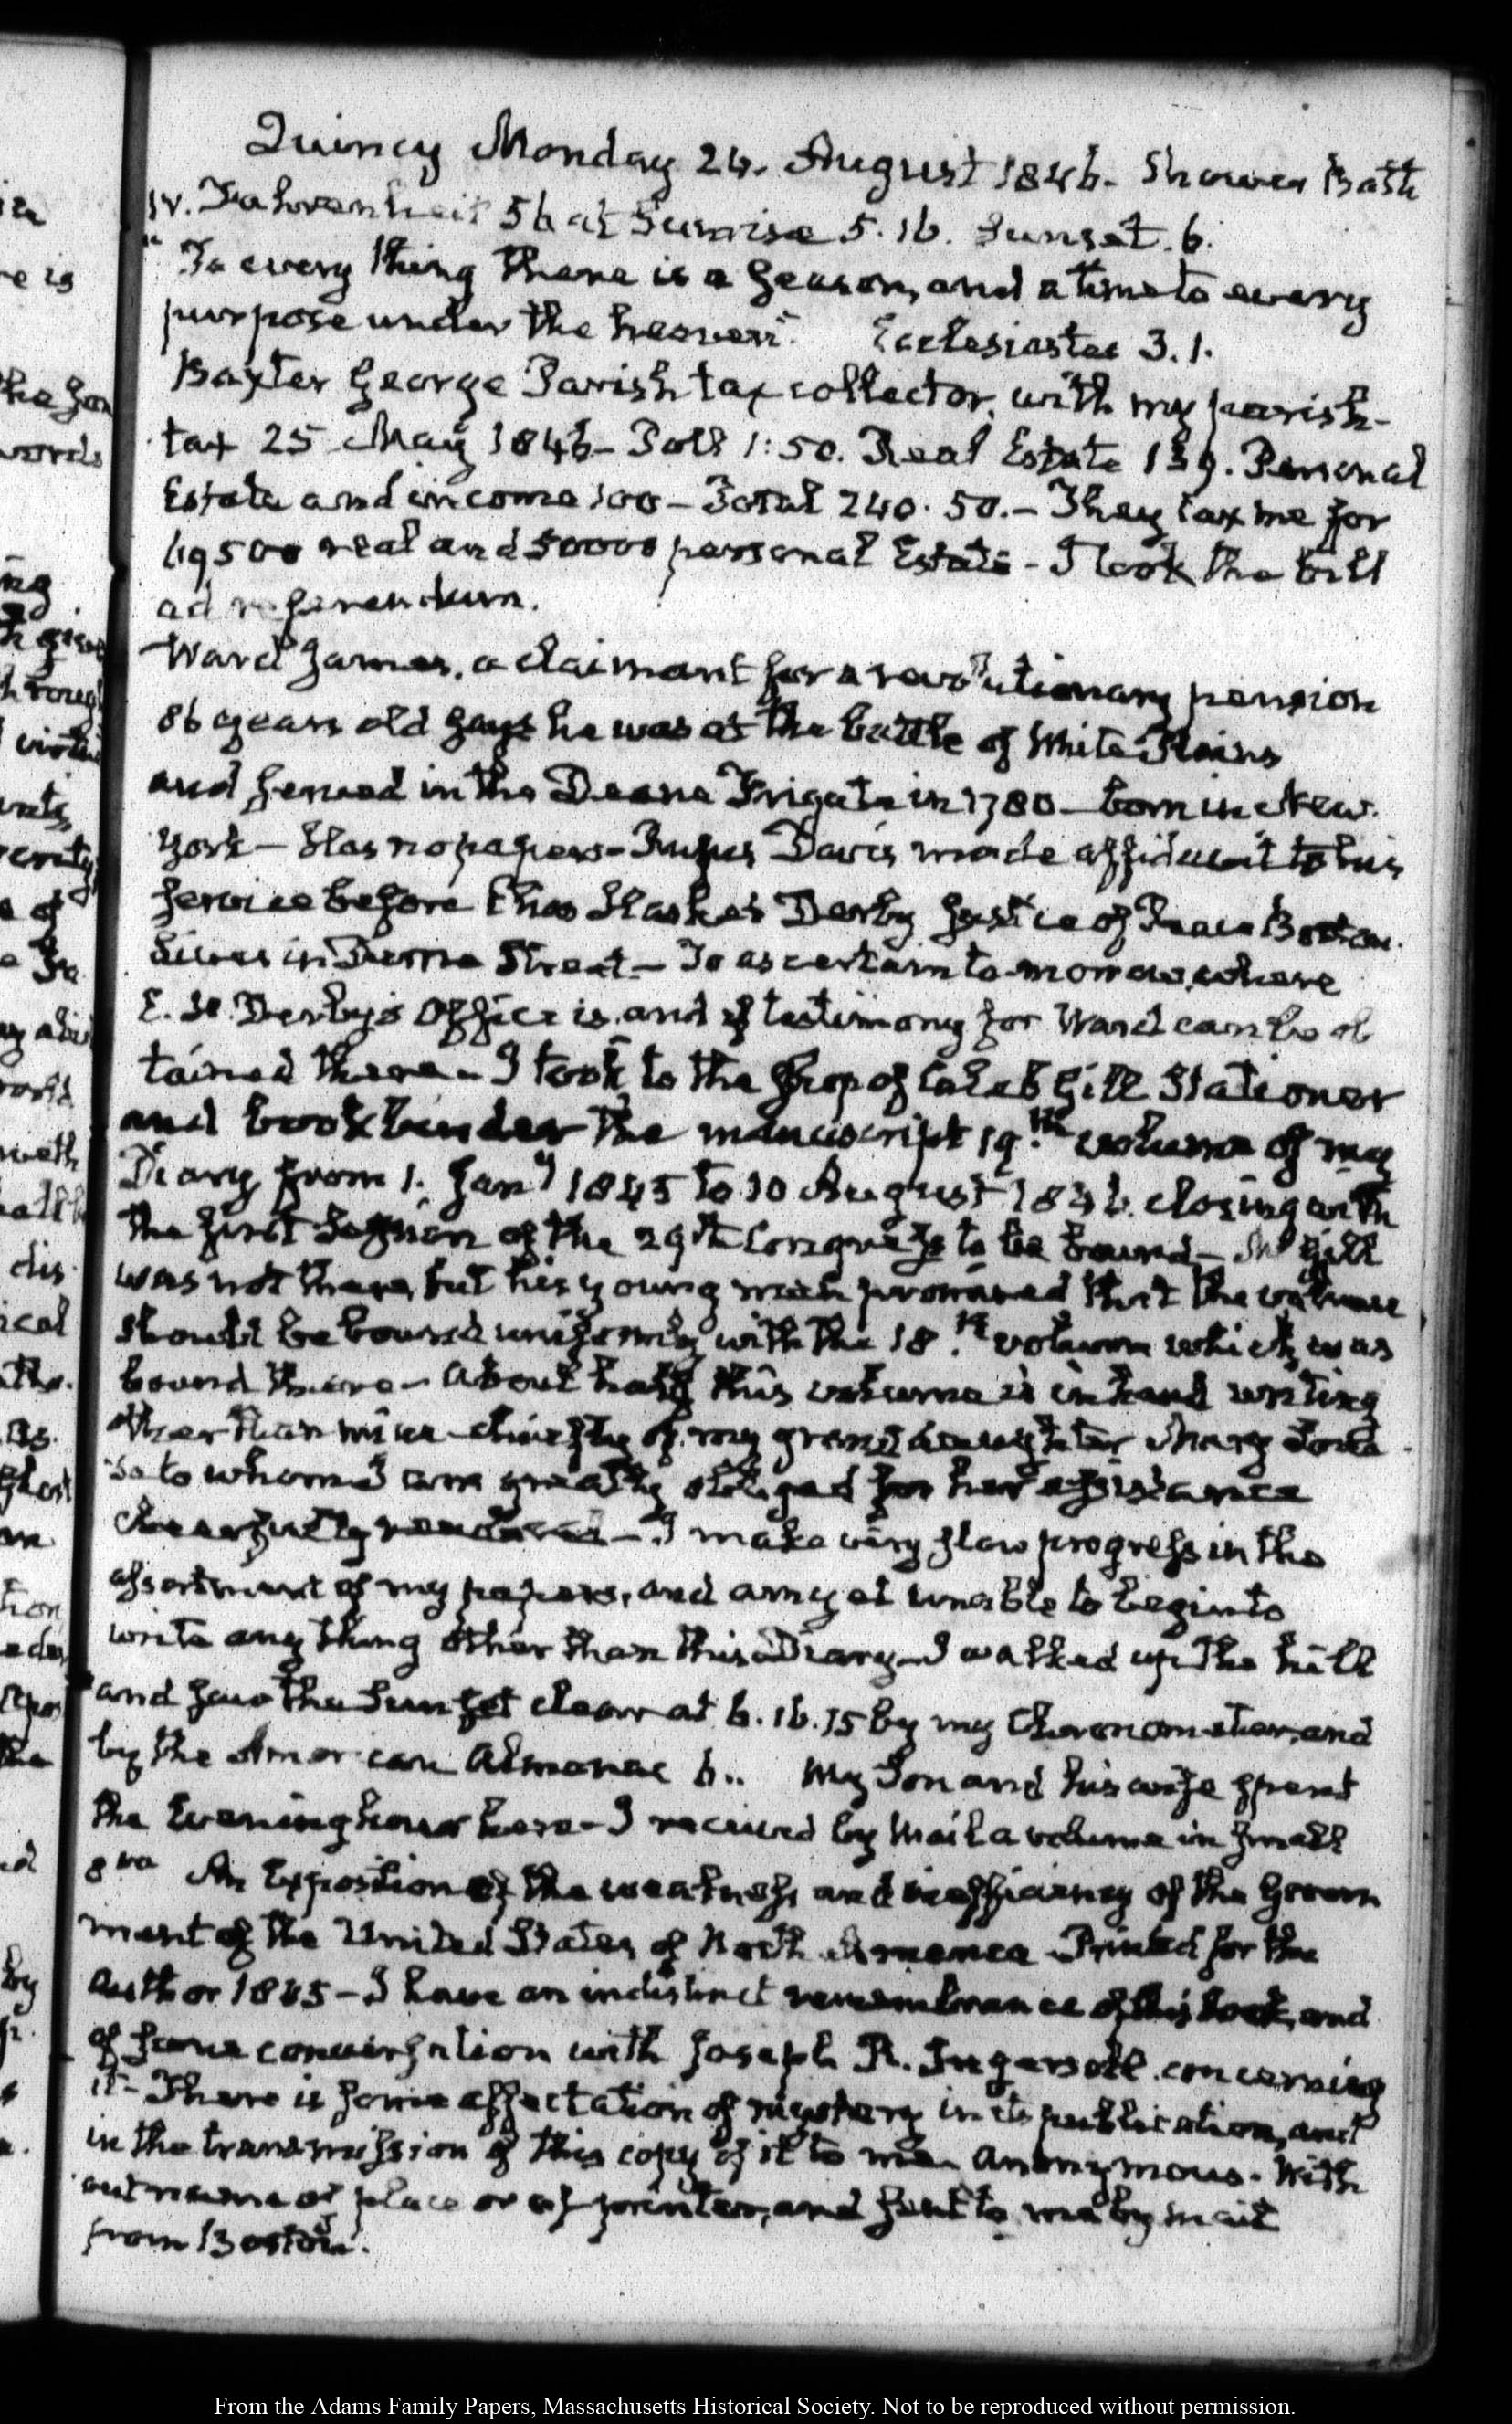 Quincy Monday 24. August 1846. Shower Bath
IV. Fahrenheit 56 at Sunrise 5.16. Sunset. 6.
"To every thing there is a Season, and a time to every
purpose under the heaven". Ecclesiastes 3.1.
Baxter George Parish tax collector, with my parish-
tax 25 May 1846– Poll 1:50. Real Estate 139. Personal
Estate and income 100 – Total 240.50. – They tax me for
69500 real and 50000 personal Estate – I took the bill
ad referendum.
Ward James, a claimant for a revolutionary pension
86 years old says he was at the battle of White Plains
and served in the Deane Frigate in 1780 – born in New-
York – Has no papers – Rufus Davis made affidavit to his
service before Elias Hasket Derby Justice of Peace Boston.
Lives in Derne Street – To ascertain to-morrow, where
E. H. Derby's Office is, and if testimony for Ward can be ob
tained there – I took to the shop of Caleb Gill Stationer
and bookbinder the manuscript 19.th volume of my
Diary from 1. Jany 1845 to 10 August 1846. closing with
the first Session of the 29th Congress to be bound – Mr Gill
was not there, but his young man promised that the volume
should be bound uniformly with the 18.th volume which was
bound there – about half this volume is in hand writing
other than mine – chiefly of my grand daughter Mary Loui
sa to whom I am greatly obliged for her assistance
cheerfully rendered – I make very slow progress in the
assortment of my papers, and am yet unable to begin to
write any thing other than this Diary – I walked up the hill
and saw the Sun set clear at 6.16.15 by my Chronometer, and
by the American Almanac 6.. My Son and his wife spent
the Evening hour here – I received by Mail a volume in small
8vo An Exposition of the weakness and inefficiency of the Govern
ment of the United States of North America – Printed for the
author 1845 – I have an indistinct remembrance of this book, and
of some conversation with Joseph R. Ingersoll concerning
it – There is some affectation of mystery in its publication, and
in the transmission of this copy of it to me – Anonymous – With
out name of place or of printer, and sent to me by mail
from Boston.
From the Adams Family Papers, Massachusetts Historical Society. Not to be reproduced without permission.